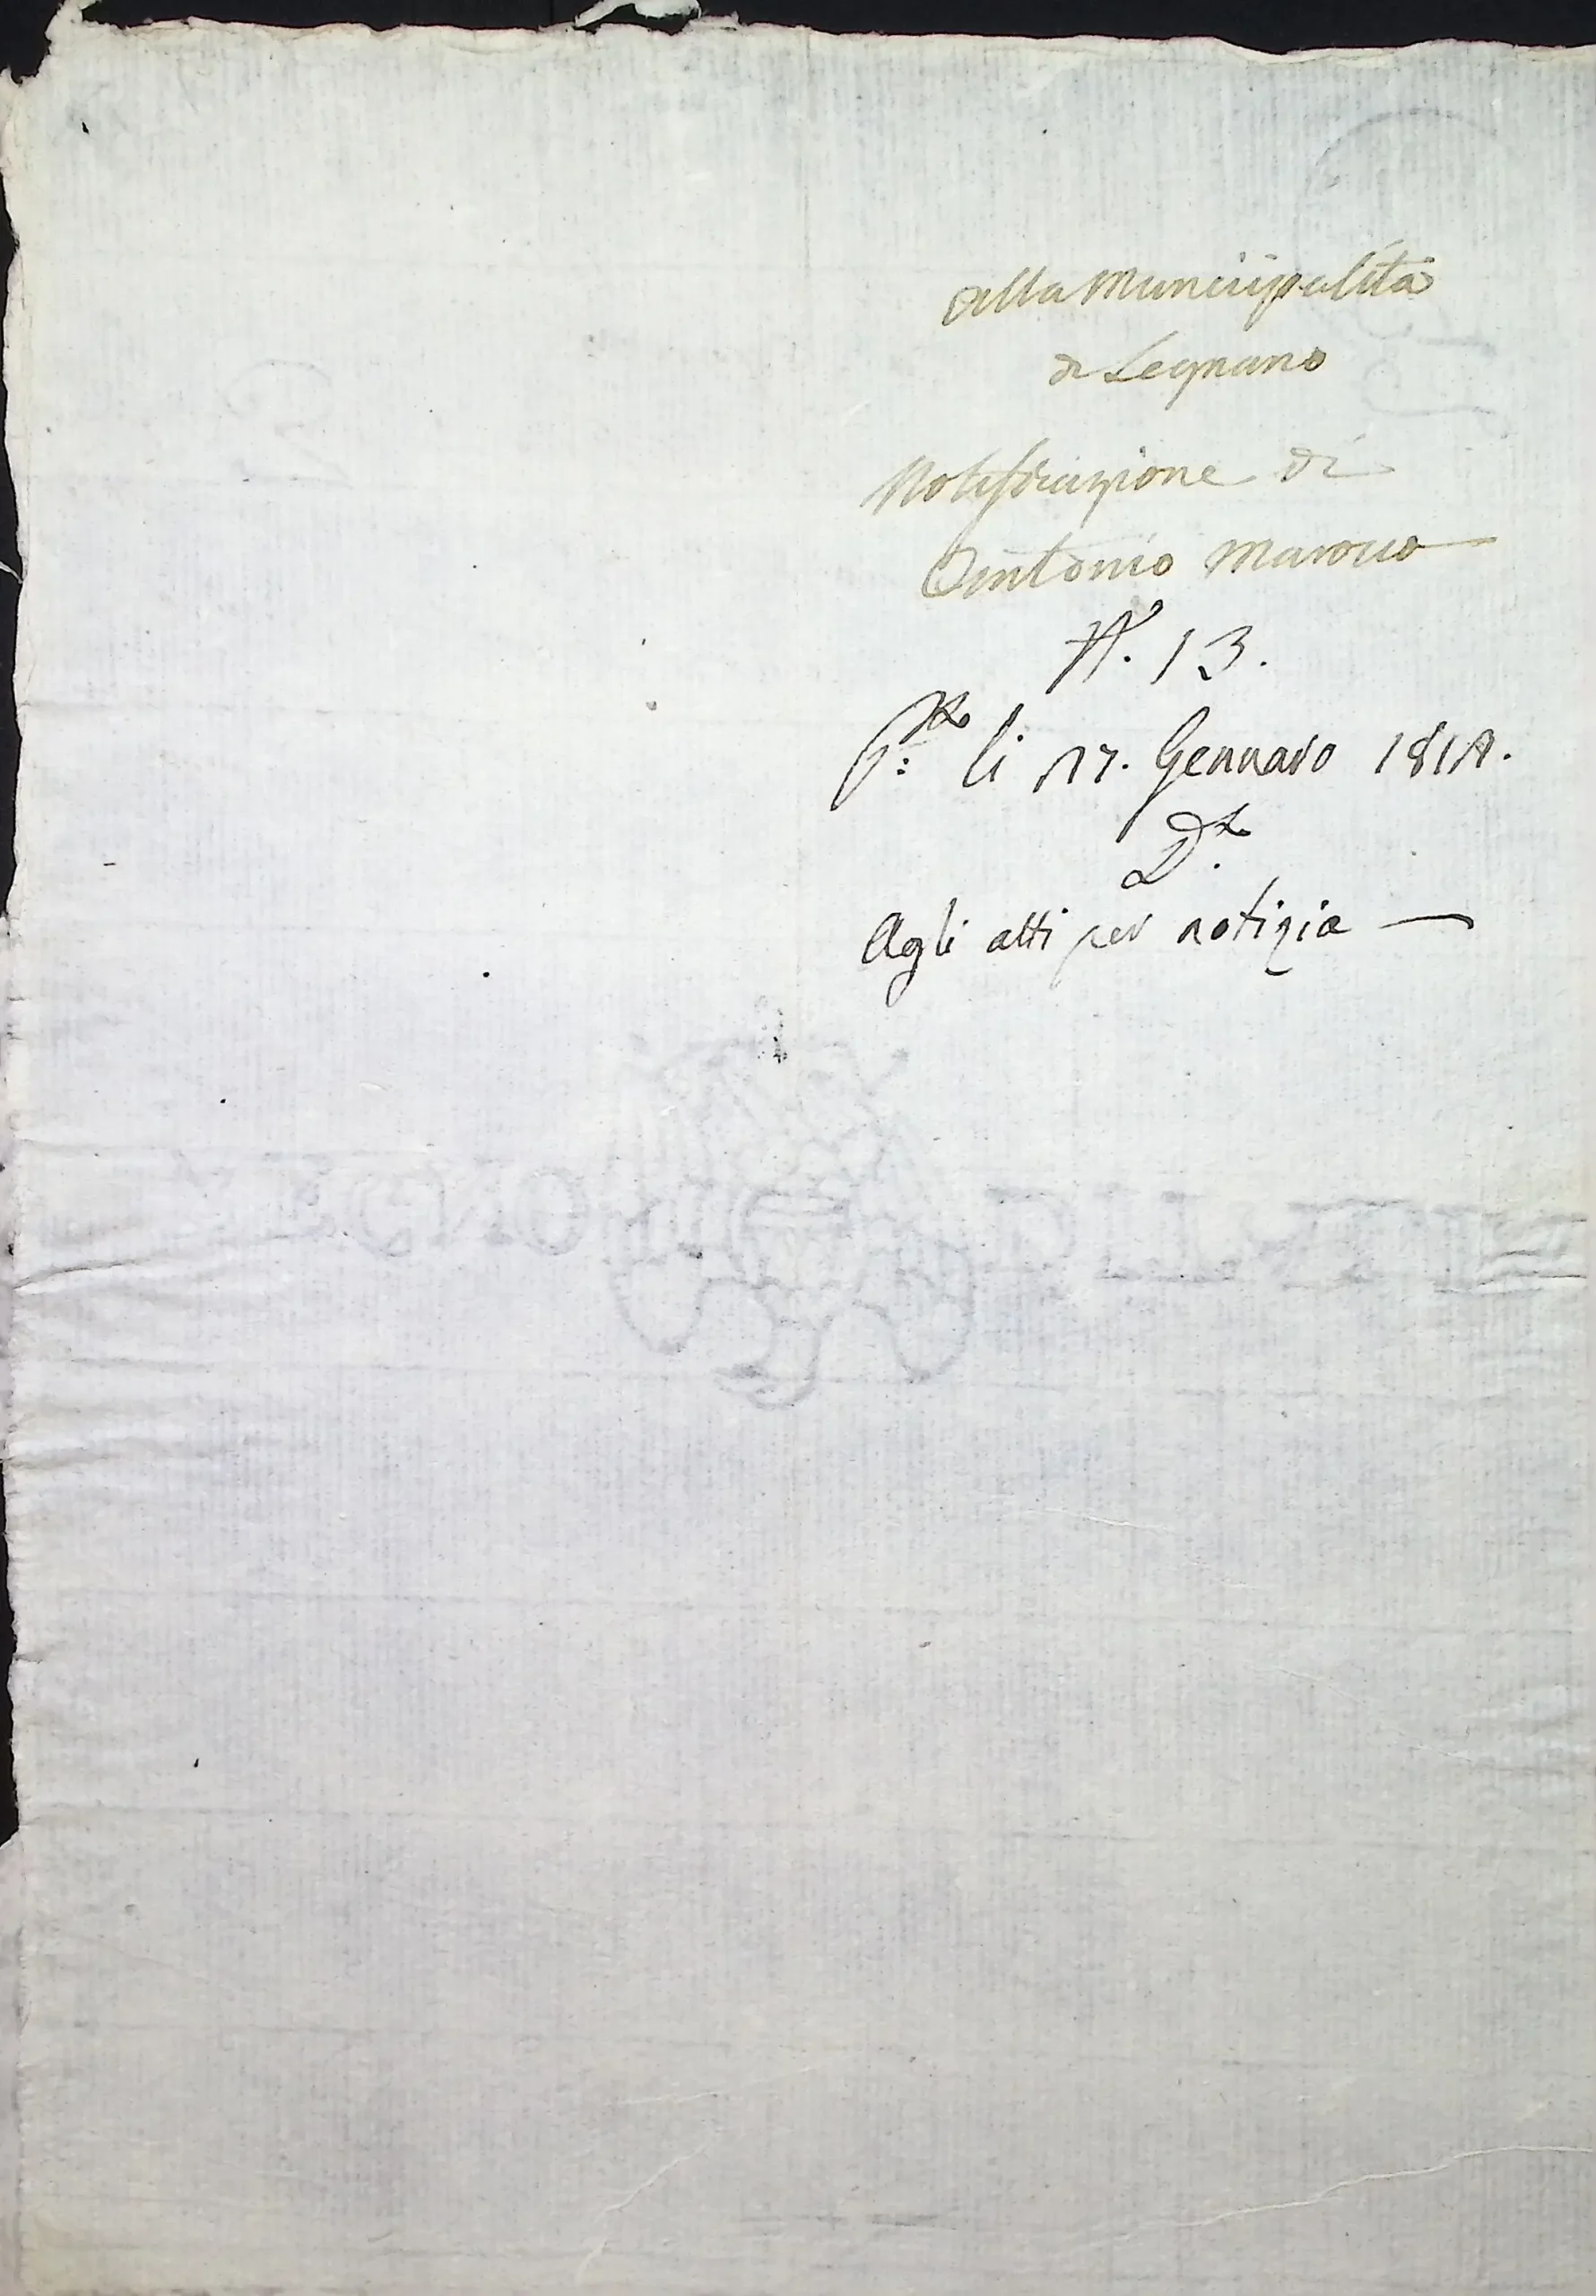 Alla Municipalità
di Legnano
Notificazione di
Antonio Marocco
N. 13.
li 17. Gennaro 181
D.
Agli atti per notizia